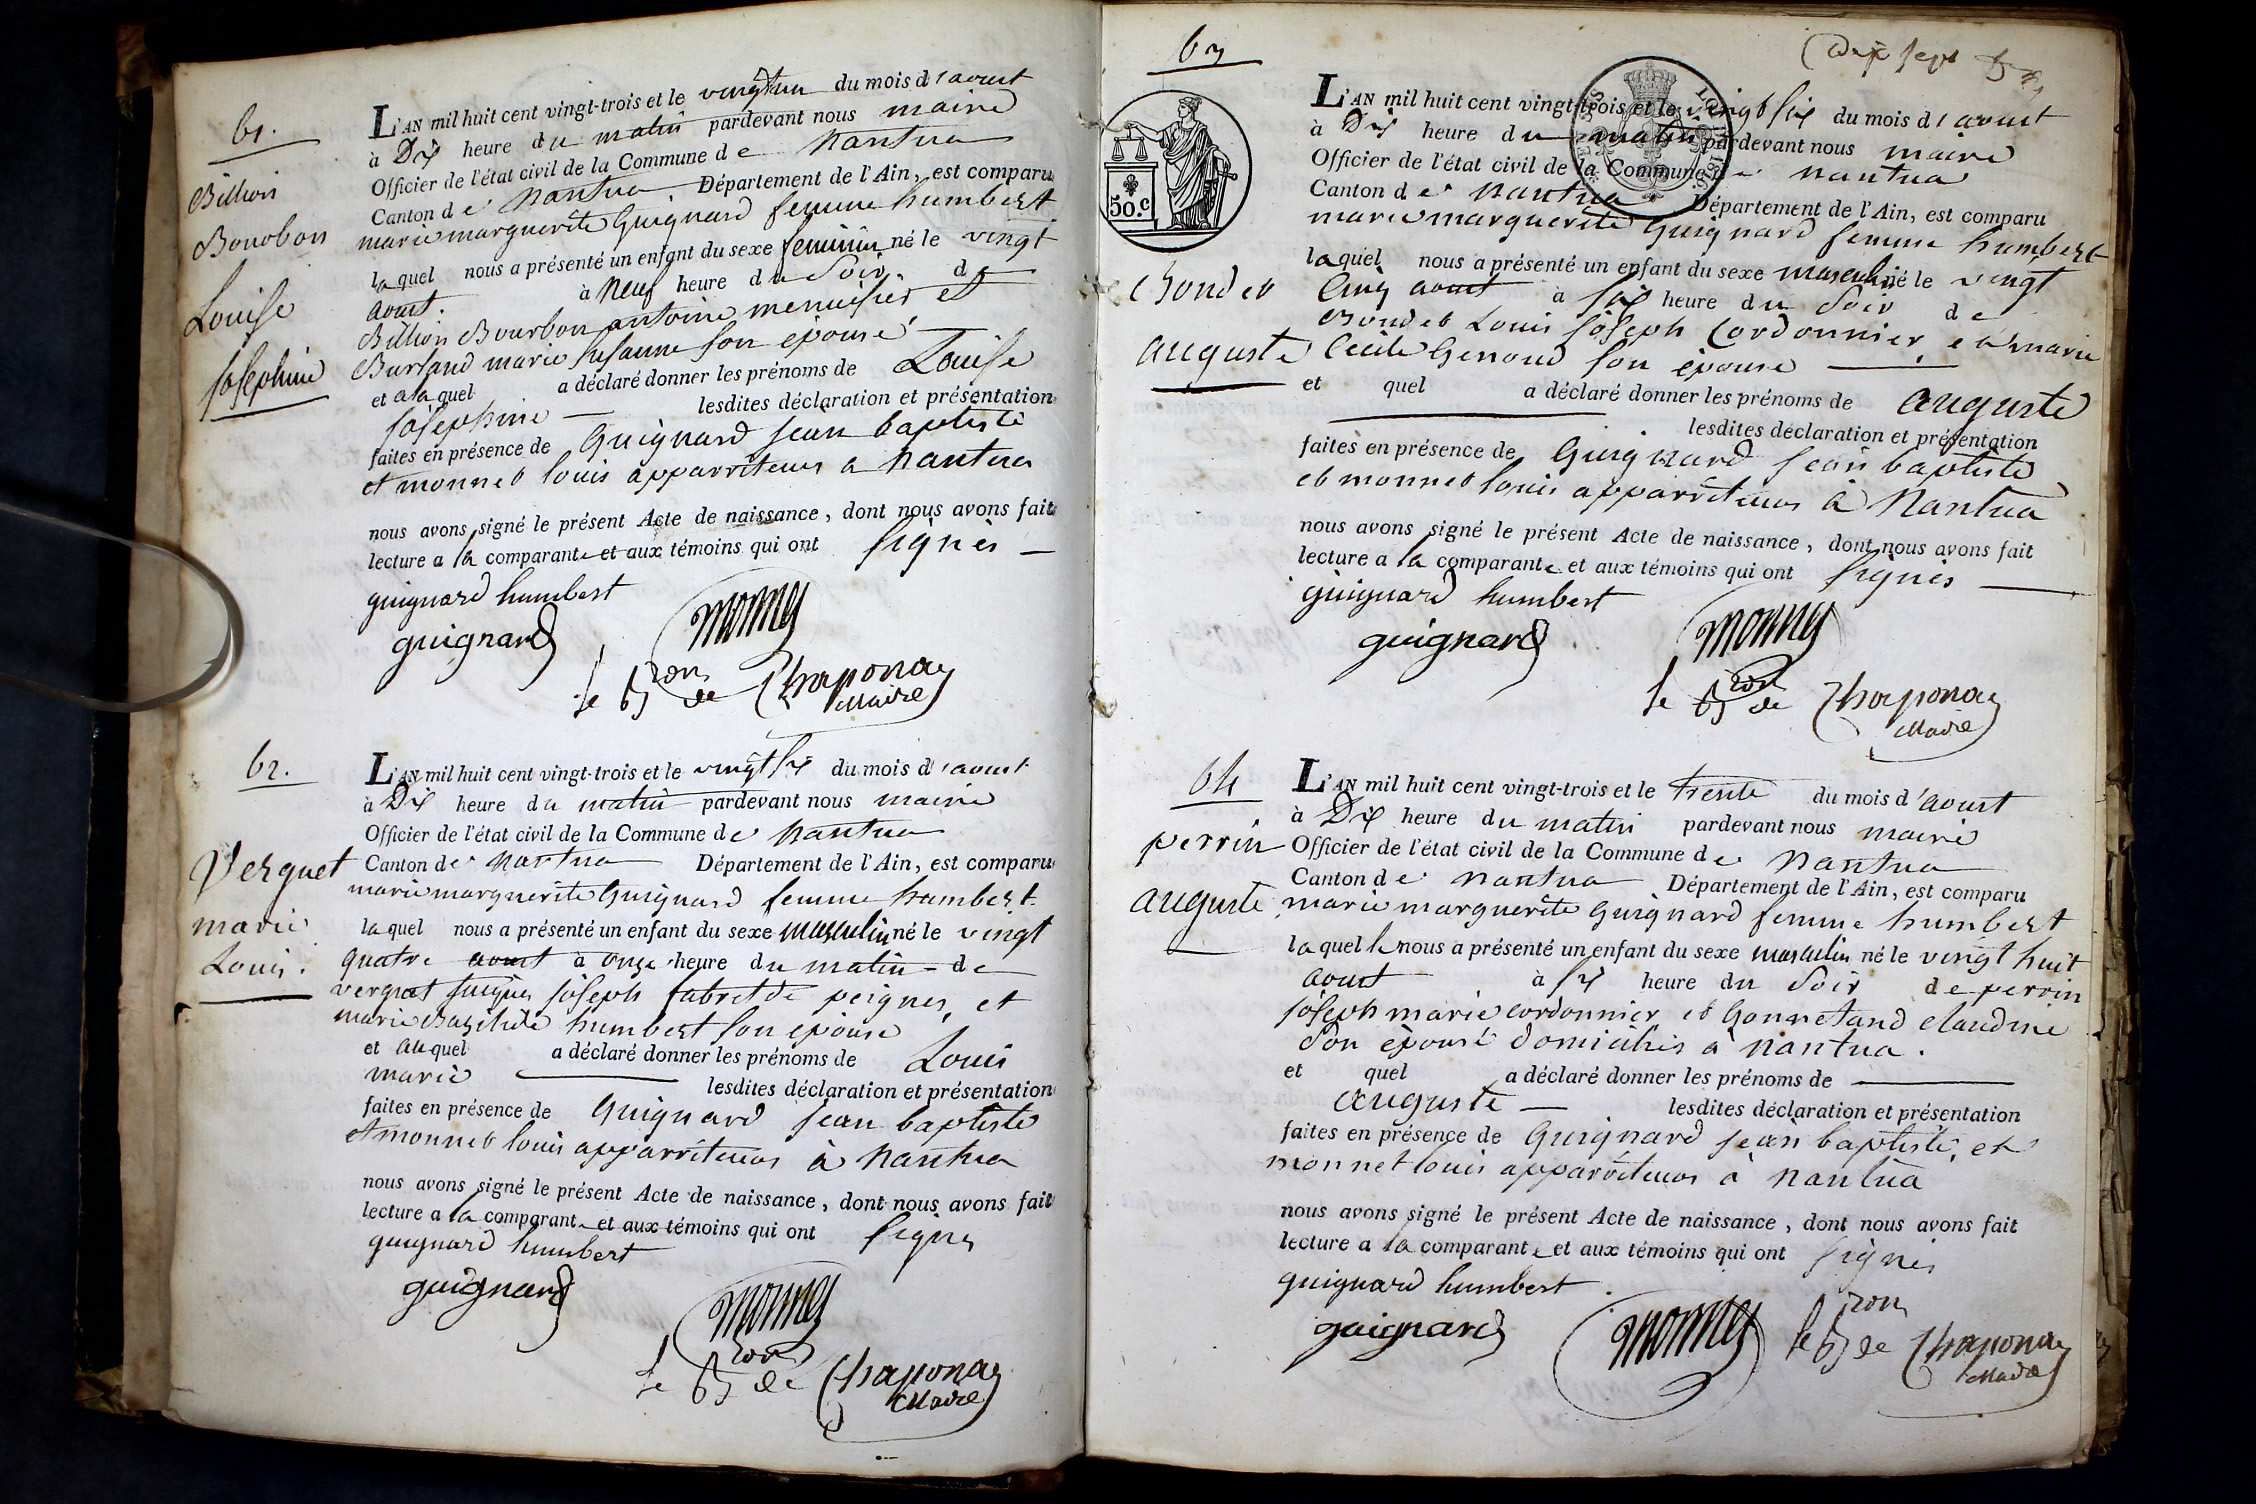 61.
Billion
Bourbon
Louise
Josephine
L'AN mil huit cent vingt-trois et le vingt un du mois d'aoust
à Dix heure du matin pardevant nous maire
Officier de l'état civil de la Commune de Nantua
Canton de Nantua Département de l'Ain, est comparu
marie marguerite Guignard femme humbert
laquel nous a présenté un enfant du sexe feminin né le vingt
aoust. à neuf heure du Soir. de
Billion Bourbon antoine menuisier et
marie susanne son épouse
et alaquel a déclaré donner les prénoms de Louise
Josephine lesdites déclaration et présentation
faites en présence de Guignard jean baptiste
et monnet louis apparriteurs a Nantua
nous avons signé le présent Acte de naissance, dont nous avons fait
lecture a la comparante et aux témoins qui ont signés
guignard humbert
guignard monnet
le Bron de Chaponay
Maire
62.
Verguet
marie
Louis.
L'AN mil huit cent vingt-trois et le vingt six du mois d'aoust
à Dix heure du matin pardevant nous maire
Officier de l'état civil de la Commune de Nantua
Canton de Nantua Département de l'Ain, est comparu
marie marguerite Guignard femme humbert
laquel nous a présenté un enfant du sexe masculin né le vingt
quatre aoust à onze heure du matin de
joseph de peignes, et
marie humbert son épouse
et auquel a déclaré donner les prénoms de Louis
marie lesdites déclaration et présentation
faites en présence de Guignard jean baptiste
et monnet louis apparriteurs à Nantua
nous avons signé le présent Acte de naissance, dont nous avons fait
lecture a la comparante et aux témoins qui ont signés
guignard humbert
guignard monnet
le Bron de Chaponay
Maire
Dix sept
63
50.c
Chondet
auguste
L'AN mil huit cent vingt-trois et le vingt six du mois d'aoust
à Dix heure du matin pardevant nous maire
Officier de l'état civil de la Commune de Nantua
Canton de Nantua Département de l'Ain, est comparu
marie marguerite Guignard femme humbert
laquel nous a présenté un enfant du sexe masculin né le vingt
cinq aoust à six heure du Soir de
Louis joseph Cordonnier et marie
Cecile Genoud son épouse
et quel a déclaré donner les prénoms de auguste
lesdites déclaration et présentation
faites en présence de Guignard jean baptiste
et monnet louis apparriteurs à Nantua
nous avons signé le présent Acte de naissance, dont nous avons fait
lecture a la comparante et aux témoins qui ont signés
guignard humbert
guignard monnet
le Bron de Chaponay
Maire
64
perrin
auguste
L'AN mil huit cent vingt-trois et le trente du mois d'aoust
à Dix heure du matin pardevant nous maire
Officier de l'état civil de la Commune de Nantua
Canton de Nantua Département de l'Ain, est comparu
marie marguerite Guignard femme humbert
laquelle nous a présenté un enfant du sexe masculin né le vingt huit
aoust à six heure du Soir de perrin
joseph marie cordonnier et claudine
son épouse domiciliés à nantua.
et quel a déclaré donner les prénoms de
auguste lesdites déclaration et présentation
faites en présence de Guignard jean baptiste, et
monnet louis apparriteurs à nantua
nous avons signé le présent Acte de naissance, dont nous avons fait
lecture a la comparante et aux témoins qui ont signés
guignard humbert
guignard monnet le Bron de Chaponay
Maire